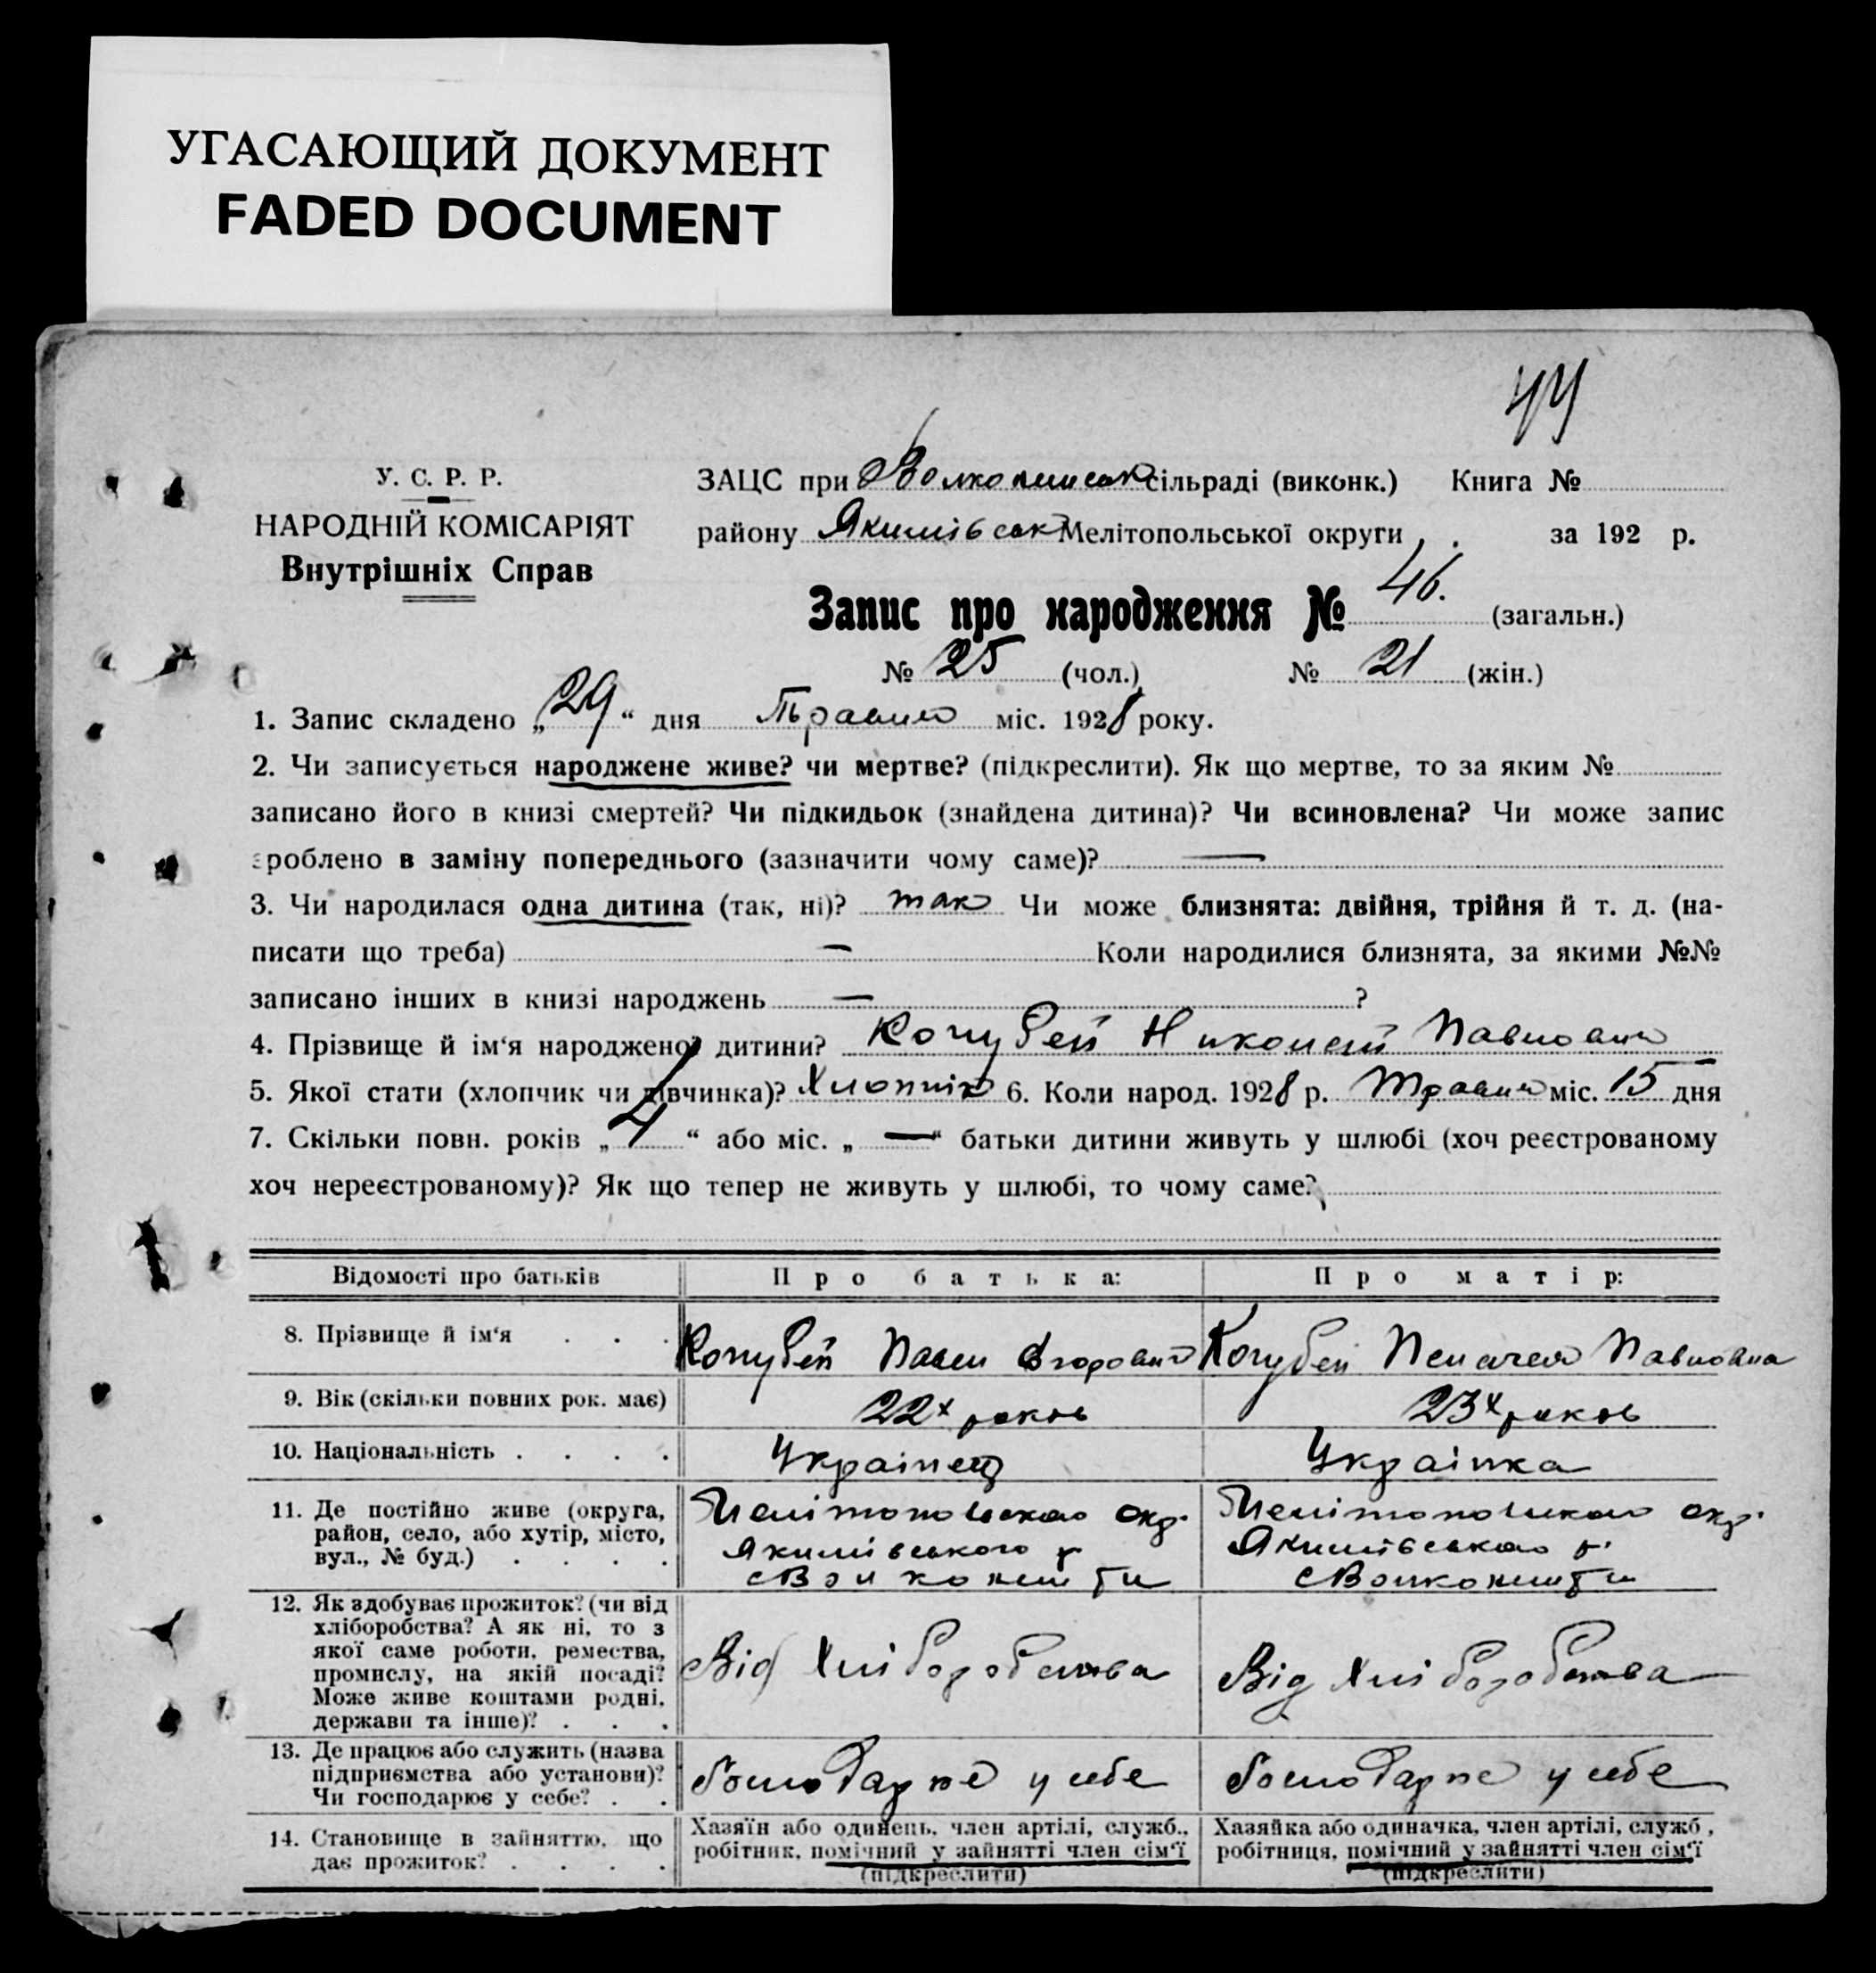 УГАСАЮЩИЙ ДОКУМЕНТ
FADED DOCUMENT
44
У. С. Р. Р.
НАРОДНІЙ КОМІСАРІЯТ
Внутрішніх Справ
ЗАЦС при сільраді (виконк.) Книга №
району Якимівськ Мелітопольської округи за 192 р.
Запис про народження № 46. (загальн.)
№ 25 (чол.) № 21 (жін.)
1. Запис складено „29“ дня Травню міс. 1928 року.
2. Чи записується народжене живе? чи мертве? (підкреслити). Як що мертве, то за яким №
записано його в книзі смертей? Чи підкидьок (знайдена дитина)? Чи всиновлена? Чи може запис
зроблено в заміну попереднього (зазначити чому саме)? —
3. Чи народилася одна дитина (так, ні)? так Чи може близнята: двійня, трійня й т. д. (на-
писати що треба) — Коли народилися близнята, за якими №№
записано інших в книзі народжень — ?
4. Прізвище й ім‘я народженої дитини? Кочубей Николай Павлович
5. Якої статі (хлопчик чи дівчинка)? Хлопчік 6. Коли народ. 1928 р. Травню міс. 15 дня
7. Скільки повн. років „4“ або міс. „—“ батьки дитини живуть у шлюбі (хоч реєстрованому
хоч нереєстрованому)? Як що тепер не живуть у шлюбі, то чому саме?
Відомості про батьків Про батька: Про матір:
8. Прізвище й ім‘я . . . Кочубей Павел Кочубей Павловна
9. Вік (скільки повних рок. має) 22х років 23х років
10. Національність . . . . Українец Українка
11. Де постійно живе (округа,
район, село, або хутір, місто,
вул., № буд.) . . . .
Мелітопольскою окр.
Якимівського р
Мелітопольскою окр.
Якимівською р.
12. Як здобуває прожиток? (чи від
хліборобства? А як ні, то з
якої саме роботи, ремества,
промислу, на якій посаді?
Може живе коштами родні,
держави та інше)? . . .
Від Хліборобства
Від Хліборобства
13. Де працює або служить (назва
підприємства або установи)?
Чи господарює у себе? . .
Господарює у себе
Господарює у себе
14. Становище в зайняттю, що
дає прожиток? . . . .
Хазяїн або одинець, член артілі, служб.,
робітник, помічний у зайнятті член сім‘ї
(підкреслити)
Хазяйка або одиначка, член артілі, служб.,
робітниця, помічний у зайнятті член сім‘ї
(підкреслити)